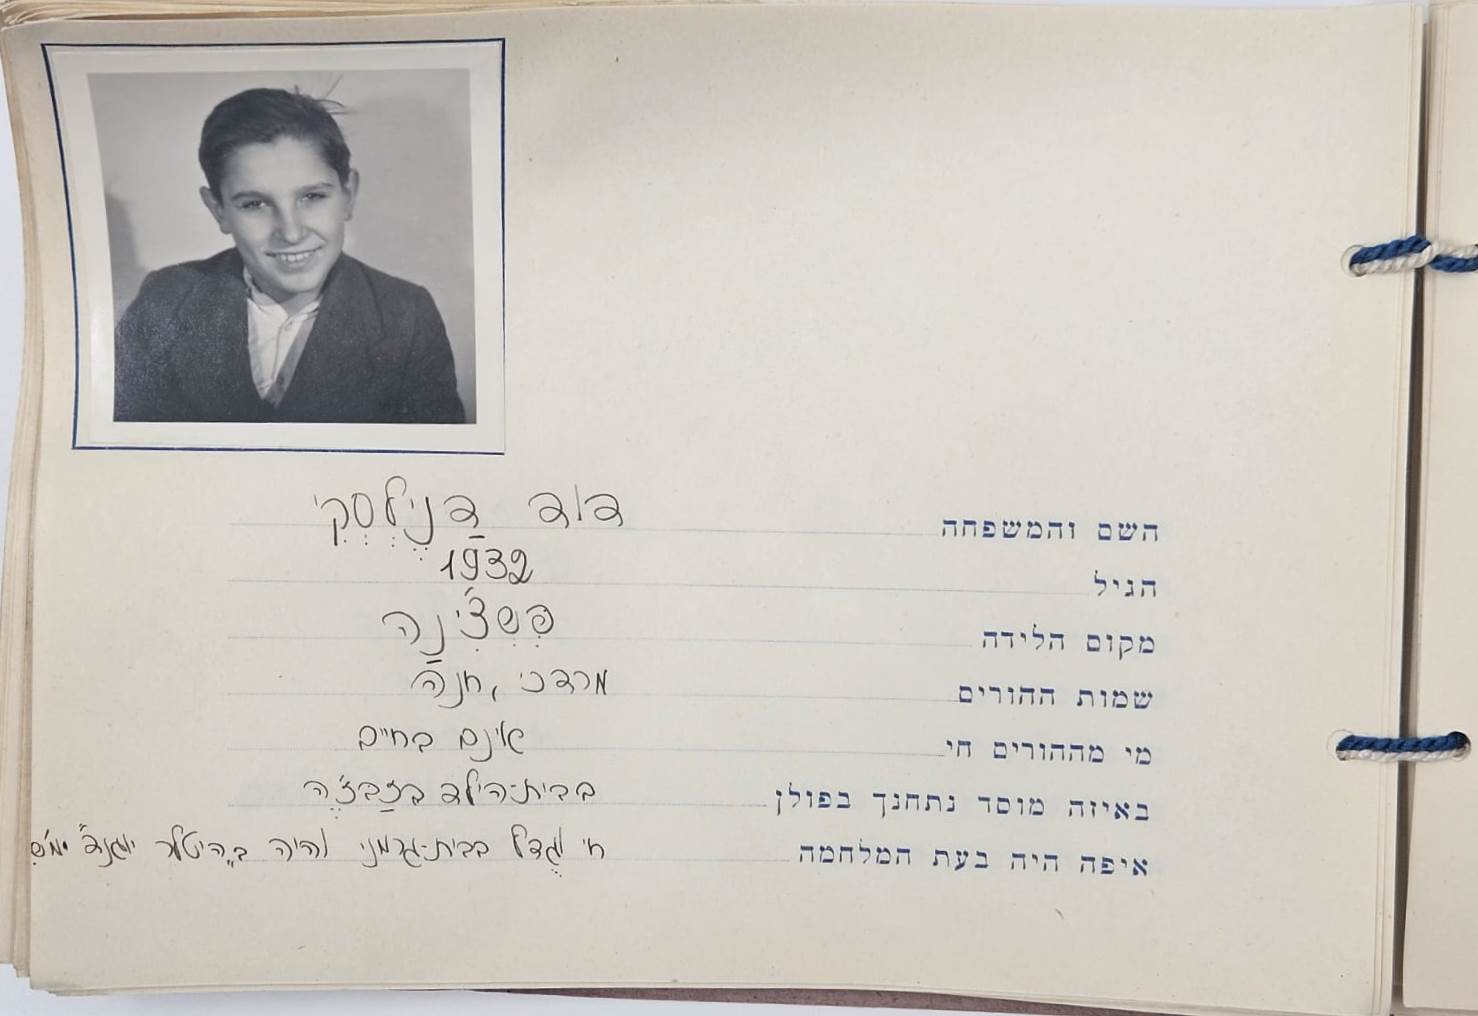 השם והמשפחה דוד דַנֶילְסְקִי
הגיל 1932
מקום הלידה פְּשְצִ'ינָה
שמות ההורים מרדכי, חנה
מי מההורים חי אינם בחיים
באיזה מוסד נתחנך בפולן בבית-הילד בְּזַבְּזֶ'ה
איפה היה בעת המלחמה חי וגֻדל בבית-גרמני והיה ב"היטלר יוגנד" ימ"ש